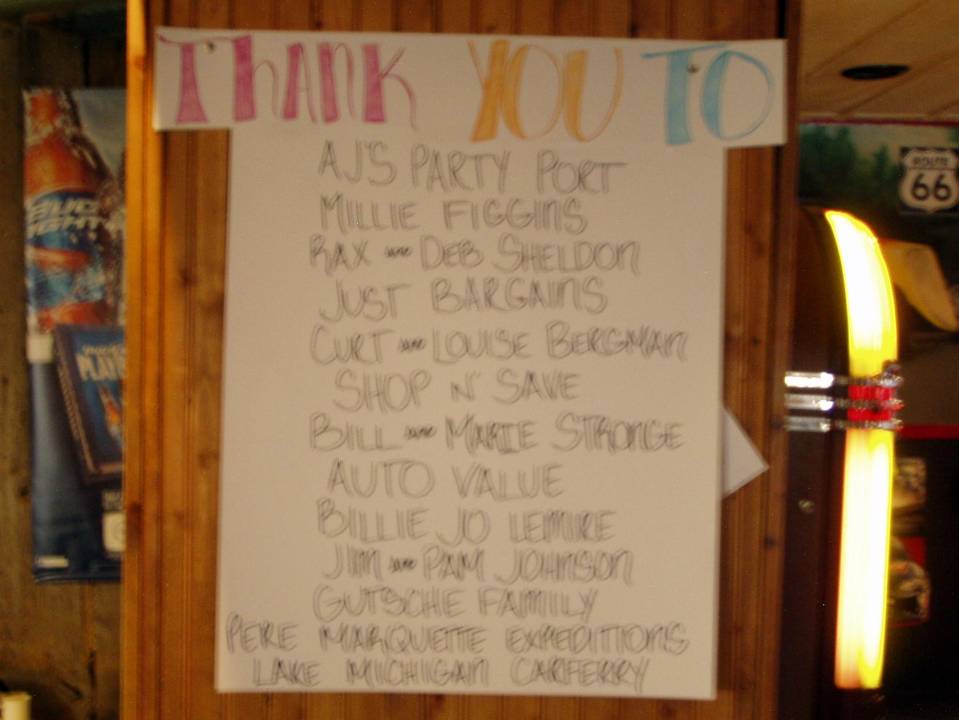 THANK YOU TO
AJ'S PARTY PORT
MILLIE FIGGINS
RAX AND DEB SHELDON
JUST BARGAINS
CURT AND LOUISE BERGMAN
SHOP N' SAVE
BILL AND MARIE STRONGE
AUTO VALUE
BILLIE JO LEMIRE
JIM AND PAM JOHNSON
GUTSCHE FAMILY
PERE MARQUETTE EXPEDITIONS
LAKE MICHIGAN CARFERRY
BUD
LIGHT
ROUTE
66